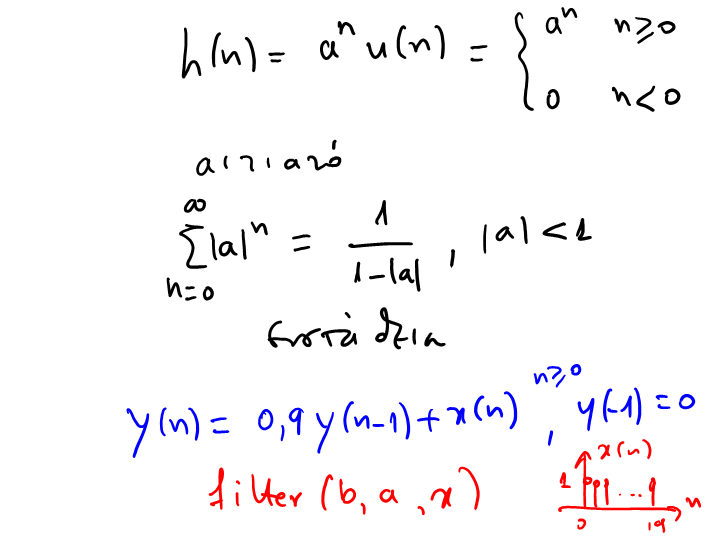 h(n) = aⁿ u(n) = { aⁿ n ≥ 0
0 n < 0
αιτιατό
∞ ∑ n=0 |a|ⁿ = 1 / (1-|a|) , |a| < 1
y(n) = 0,9 y(n-1) + x(n) , n ≥ 0 y(-1) = 0
filter (b, a, x)
x(n)
1 ... n
0 19